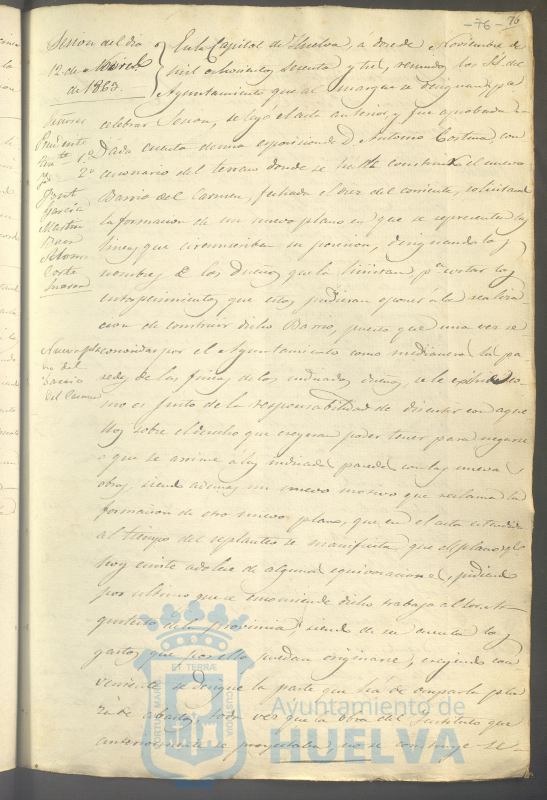 -76- 76
Sesion del dia
12 de Noviemb.
de 1863.
Señores
Presidente
Ten.te 1.º
Yd. 2.º
Garcia
Martin
Corte
Nuevo pla
no del
Barrio
del Carmen
En la Capital de Huelva, á doce de Noviembre de
mil ochocientos sesenta y tres, reunidos los SS. del
Ayuntamiento que al margen se designan, p.a
celebrar Sesion, se leyó el acta anterior, y fue aprobada.
Dada cuenta de una esposicion de D. Antonio Cortina, con
cesionario del terreno donde se ha de construir el nuevo
Barrio del Carmen, fechada el diez del corriente, solicitand
la formacion de un nuevo plano en que se representen las
lineas que circunscriban su posicion, designando los
nombres de los Dueños que la limitan p.a evitar los
entorpecimientos que estos pudieran oponer á la realiza
cion de construir dicho Barrio, puesto que una vez re
conocidas por el Ayuntamiento como medianeras las pa
redes de las fincas de los indicados dueños, se le exime co
mo es justo de la responsabilidad de discutir con aque
llos sobre el derecho que creyeran poder tener para negarse
á que se arrime á las indicadas paredes con las nuevas
obras, siendo ademas un nuevo motivo que reclama la
formacion de otro nuevo plano, que en el acta estendida
al tiempo del replanteo se manifiesta que el plano q.e
hoy existe adolece de algunas equivocaciones, pidiend
por ultimo que se encomiende dicho trabajo al Arqui
tecto de la Provincia, siendo de su cuenta los
gastos que por ello puedan originarse, creyendo con
veniente se designe la parte que ha de ocupar la pla
za de abastos, toda vez que la obra del Instituto que
anteriormente se proyectaba, no se construye se-
PORTUS MARIS ET TERRÆ CUSTODIA
Ayuntamiento de
HUELVA